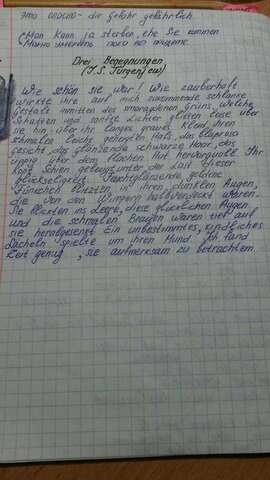 это опасно - die Gefahr gefährlich
Man kann ja sterben, ehe Sie kommen
Можно умереть пока вы придете
Drei Begegnungen
(I.S. Turgenjew)
Wie schön sie war! Wie zauberhaft
wirkte ihre auf mich zukommende schlanke
Gestalt inmitten des smaragdenen Grüns, Welche
Schatten und sanfte Lichter glitten leise über
sie hin, über ihr langes graues Kleid, ihren
schmalen leicht gebeugten Hals, das blaßrosa
Gesicht, das glänzende schwarze Haar, das
üppig über dem flachen Hut hervorquoll Ihr
Kopf schien gebeugt unter der Last dieser
Glückseligkeit. Feuchtglänzende goldene
Fünkchen blitzten in ihren dunklen Augen,
die von den Wimpern halbverdeckt waren.
Sie blickten ins Leere, diese glücklichen Augen
und die schmalen Brauen waren tief auf
sie herabgesenkt Ein unbestimmtes, kindliches
Lächeln spielte um ihren Mund. Ich fand
Zeit genug, sie aufmerksam zu betrachten.